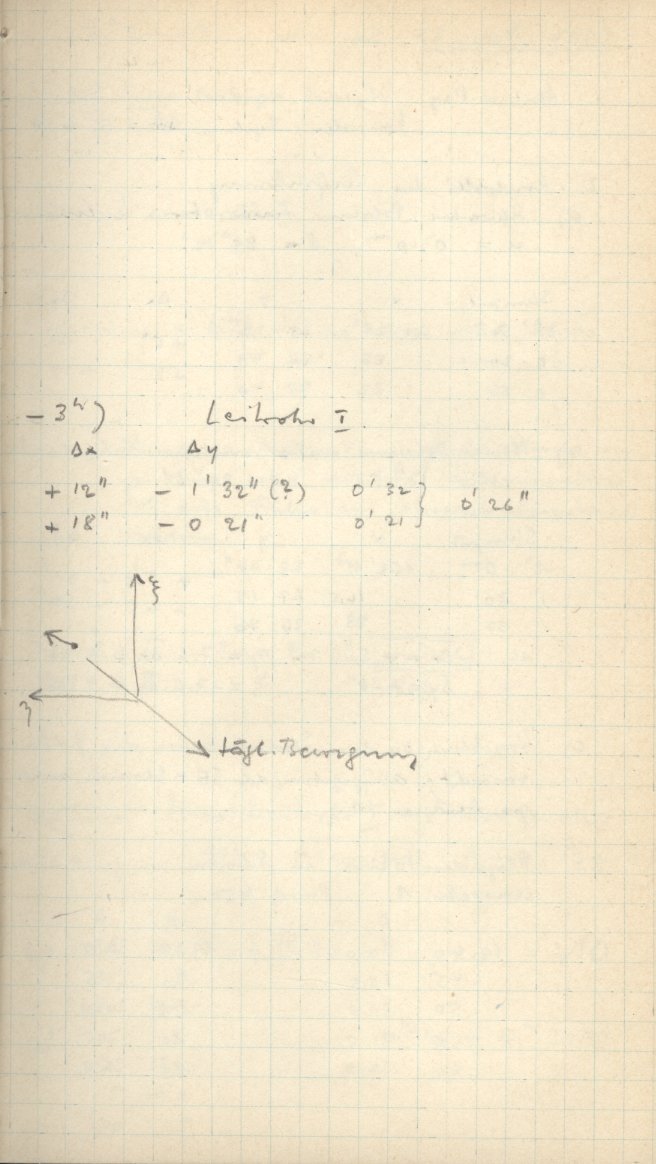 – 3ʰ) Leitrohr I
Δx Δy
+ 12" – 1' 32" (?) 0' 32 } 0' 26"
+ 18" – 0 21" 0' 21
ξ
η
tägl. Bewegung